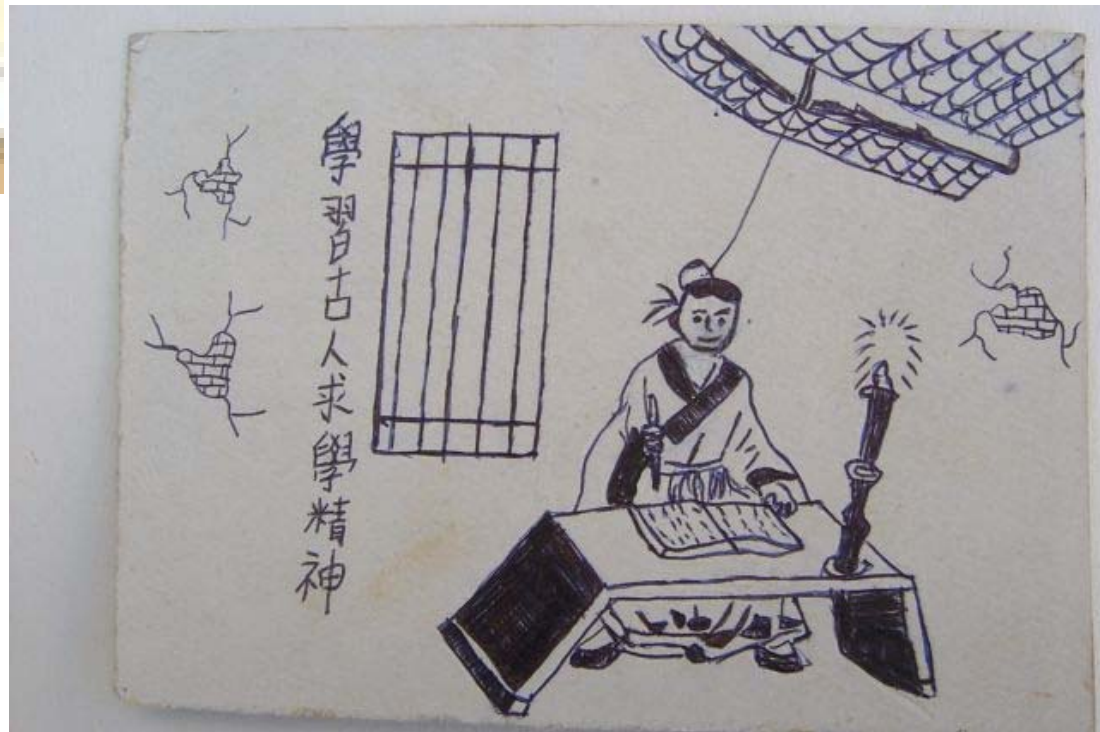 學習古人求學精神